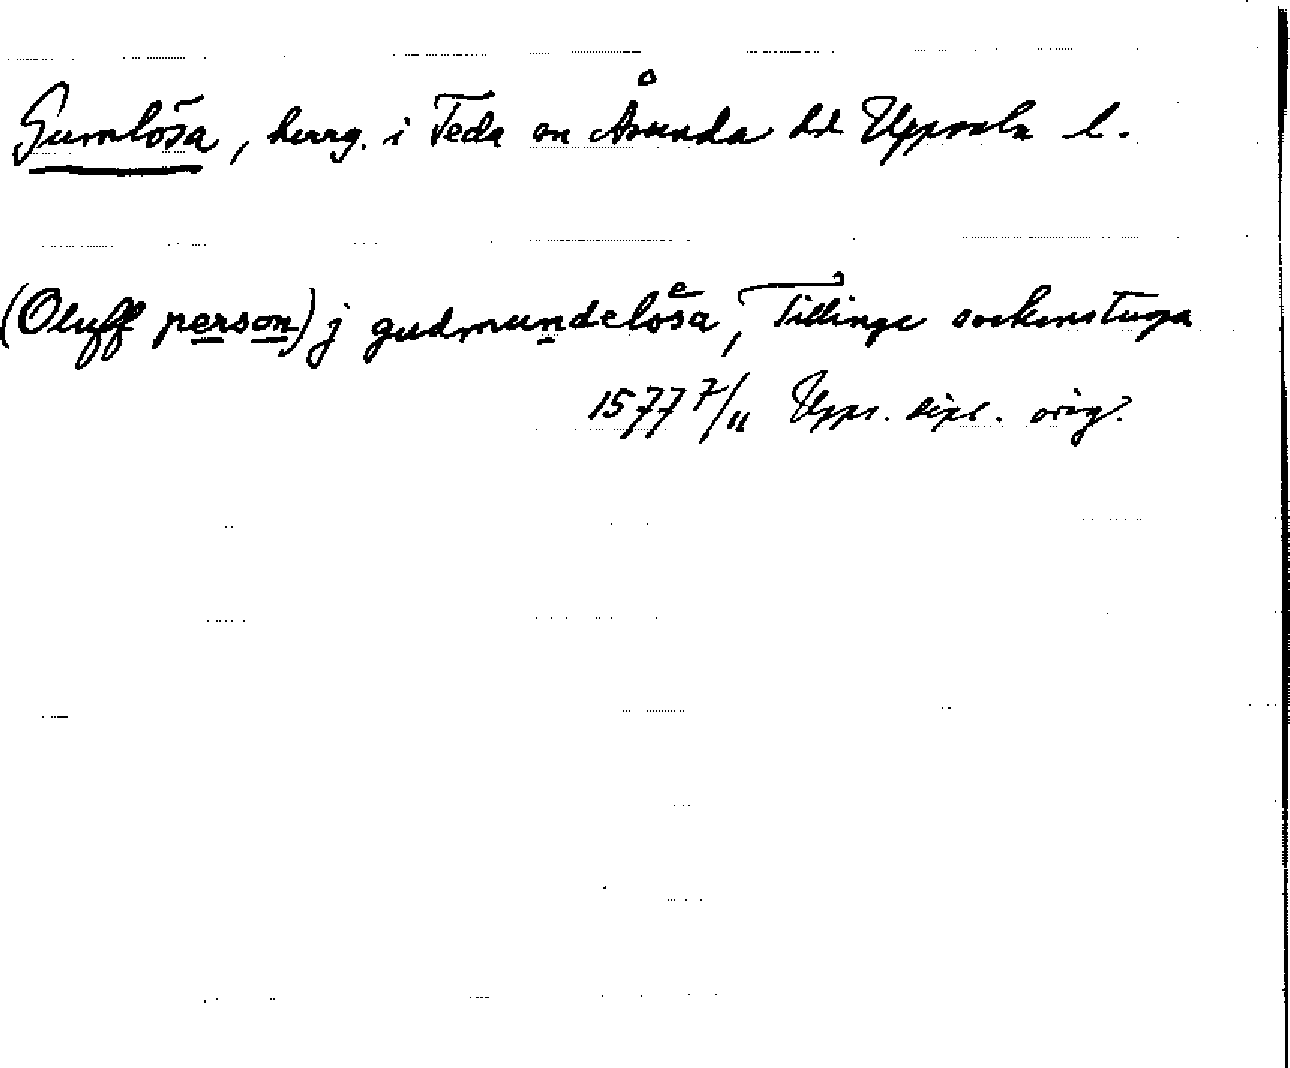 Gumlösa, herrg. i Teda sn Åsunda hd Uppsala l.
(Oluff person) j gudmundelösa, Tillinge sockenstuga
1577 7/11 Upps. dipl. orig.